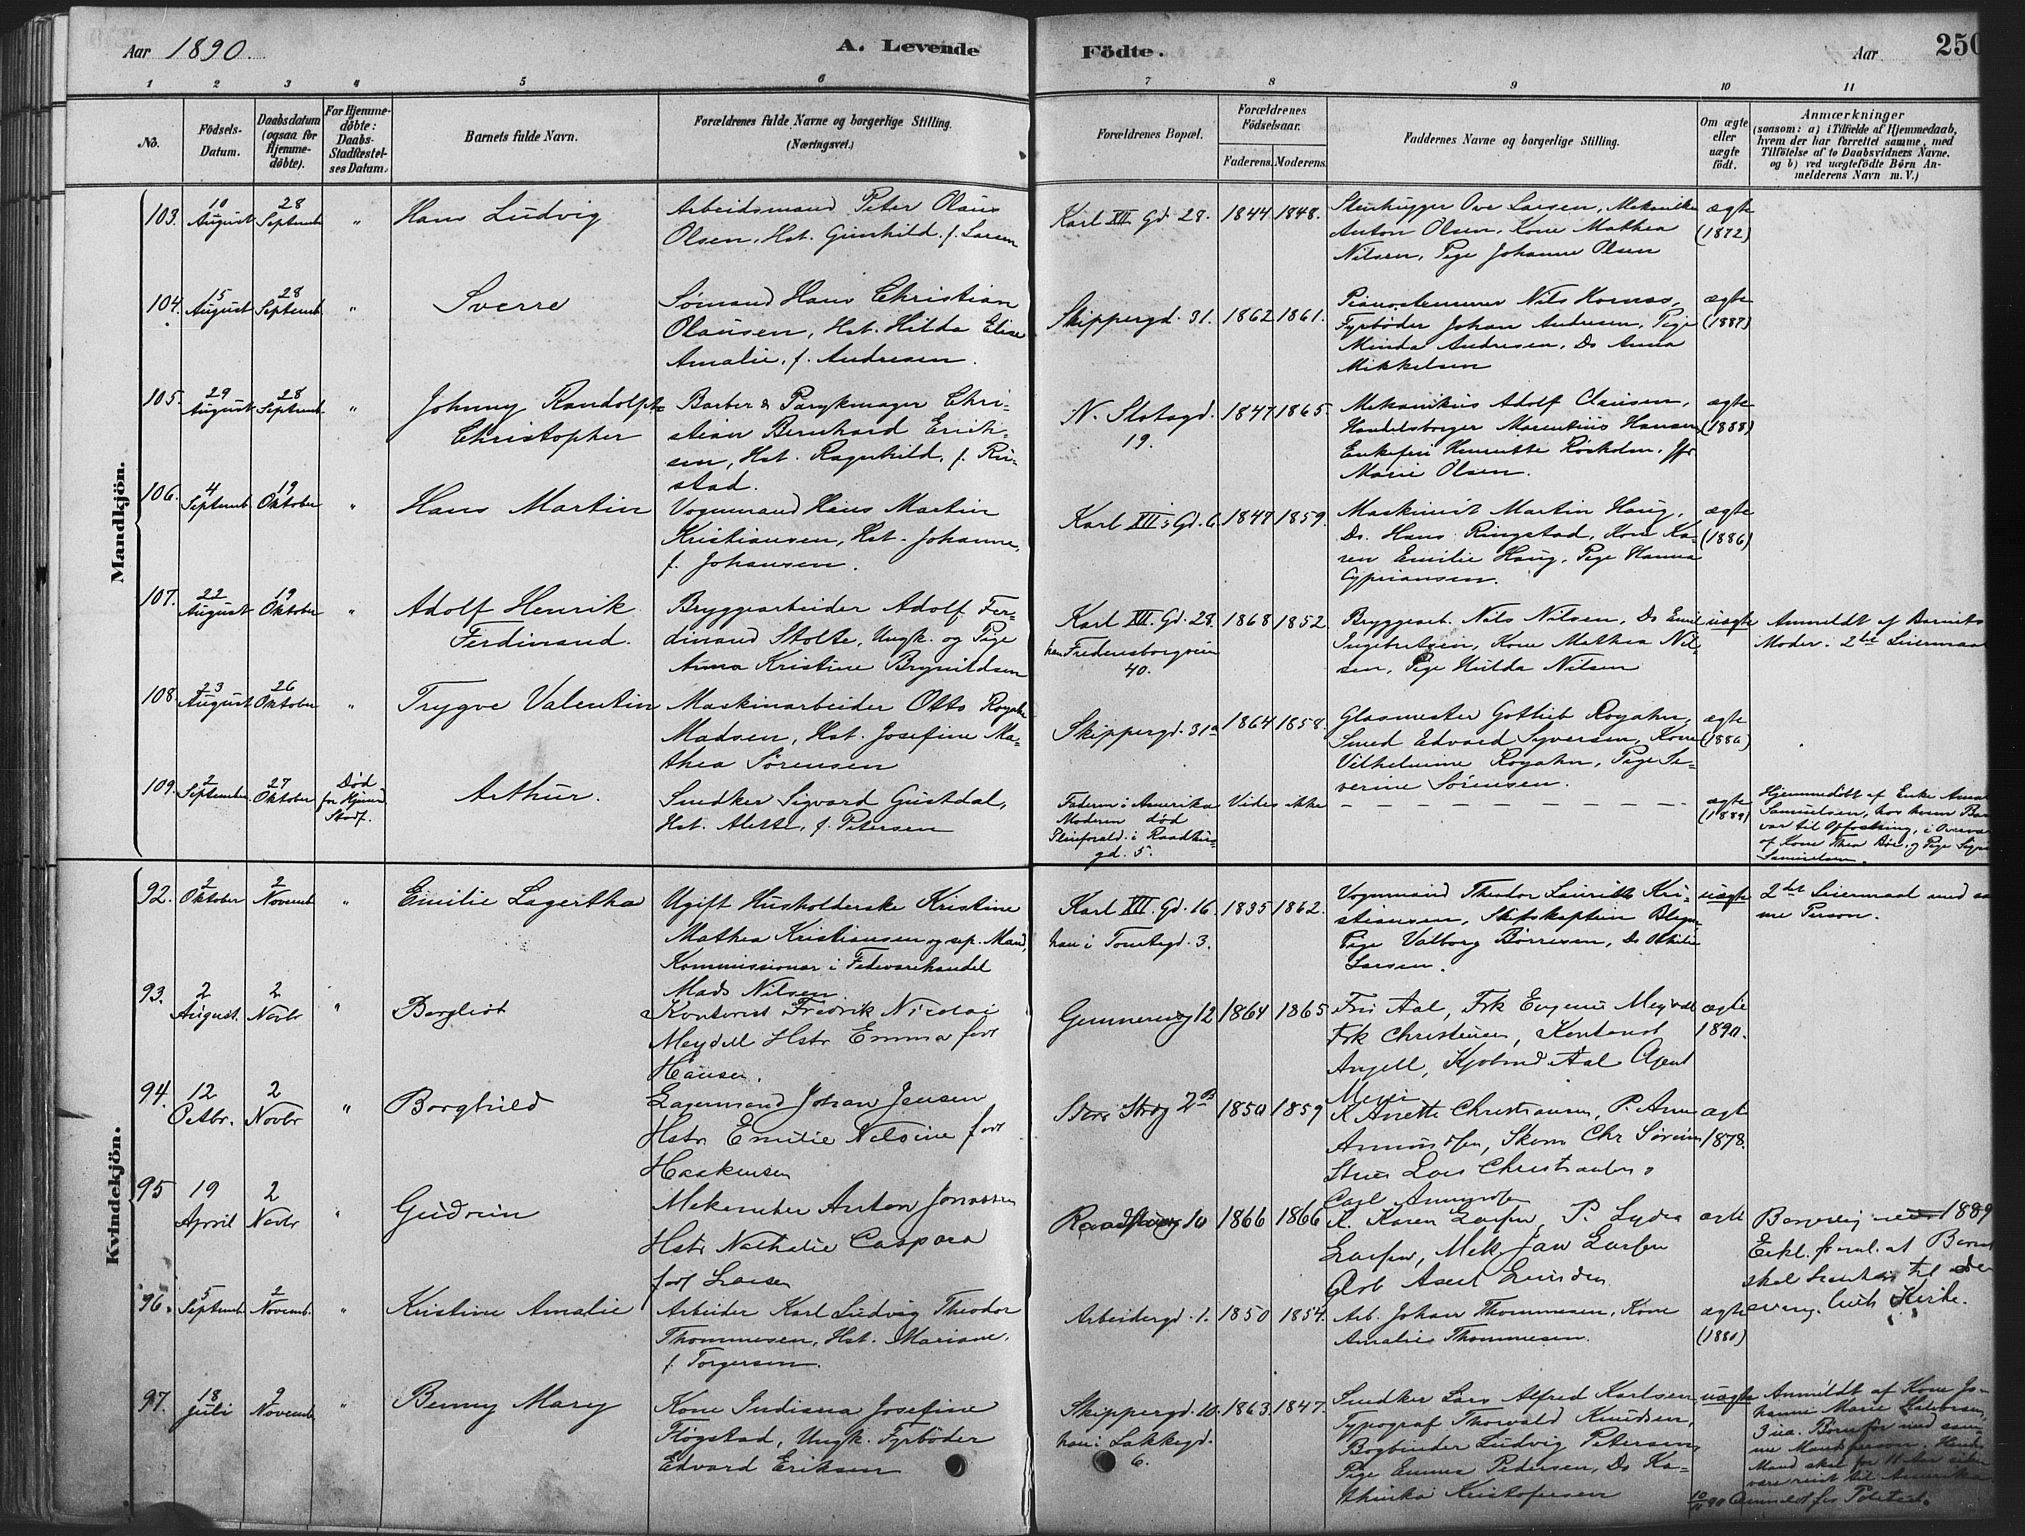 Aar 1890. A. Levende Födte. Aar 250
1 2 3 4 5 6 7 8 9 10 11
No.
Födsels-
Datum.
Daabsdatum
(ogsaa for
Hjemme-
døbte).
For Hjemme-
døbte:
Daabs-
Stadfæstel-
ses Datum.
Barnets fulde Navn.
Forældrenes fulde Navne og borgerlige Stilling.
(Næringsvei.)
Forældrenes Bopæl.
Forældrenes
Födselsaar.
Faderens. Moderens.
Faddernes Navne og borgerlige Stilling.
Om ægte
eller
uægte
født.
Anmærkninger
(saasom: a) i Tilfælde af Hjemmedaab,
hvem der har forrettet samme, med
Tilföielse af to Daabsvidners Navne.
og b) ved uægtefödte Börn An-
melderens Navn m. V.)
Mandkjön.
103. 10 August 28 Septemb " Hans Ludvig
Arbeidsmand Peter Olaus
Olsen, Hst. Gunhild f. Larsen
Karl XII Gd. 28. 1844 1848.
Ove Larsen, Mekaniker
Anton Olsen, Kone Mathea
Nilsen, Pige Johanne Olsen
ægte
(1872)
104. 15 August 28 Septemb " Sverre
Sømand Hans Christian
Olausen, Hst. Hilda Elise
Amalie, f. Andresen.
Skippergd. 31. 1862 1861.
Pianostemmer Nils
Fyrbøder Johan Andresen, Pige
Minda Andresen, Do Anna
Mikkelsen
ægte
(1887)
105. 29 August 28 Septemb " Johnny Randolph
Christopher
Barber & Parykmager Chri-
stian Bernhard Erich-
sen, Hst. Ragnhild, f. Ru-
stad.
N. Slotsgd.
19.
1847 1865.
Mekanikus Adolf Clausen,
Handelsborger Marentius Hansen
Enkefru Henriette
Marie Olsen.
ægte
(1888)
106. 4 Septemb 19 Oktober " Hans Martin
Vognmand Hans Martin
Kristiansen, Hst. Johanne,
f. Johansen.
Karl XII's Gd. 6 1847 1859.
Maskinist Martin Haug,
Do. Hans Ringstad, Kone Ka-
ren Emilie Haug, Pige Hanna
Cypriansen.
ægte
(1886)
107. 22 August 19 Oktober " Adolf Henrik
Ferdinand.
Bryggearbeider Adolf Fer-
dinand Stolte, Ungk. og Pige
Anna Kristine Brynildsen
Karl XII. Gd. 28.
han Fredensborgvein
40.
1868 1852
Bryggearb. Nils Nilsen, Do Emil
Ingebretsen, Kone Mathea Nil
sen, Pige Hulda Nilsen
uægte
Anmeldt af Barnets
Moder. 2det Leiermaal
108 23 August 26 Oktober " Trygve Valentin
Maskinarbeider Otto
Madsen, Hst. Josefine Ma-
thea Sørensen
Skippergd. 31a 1864 1858.
Glasmester Gotlieb Royahn,
Smed Edvard Syversen, Kone
Vilhelmine Royahn, Pige Se-
verine Sørensen.
ægte
(1886)
109. 2 September 27 Oktober
Død
før
Stadf.
Arthur.
Snedker Sigvard Gustdal,
Hst. Alette, f. Petersen
Faderen i Amerika
Moderen død
i Raadhus-
gd. 5.
Vides ikke
ægte
(1889)
Hjemmedøbt af Enke
Samuelsen, hos hvem
var til Opfostring, i
af Kone Thea og Pige
Samuelsen.
Kvindekjön.
92. 2 Oktober 2 Novemb " Emilie Lagertha
Ugift Husholderske Kristine
Mathea Kristiansen og sep. Mand,
Kommissionær i Fedevarehandel
Mads Nilsen.
Karl XII. Gd. 16
han i Tomtegd. 3.
1835 1862.
Vognmand Theodor Lauritz Kri-
stiansen, Skibskaptein
Pige Valborg Børresen, Do Othilie
Larsen.
uægte
2det Leiermaal med sa
me Person.
93. 2 August. 2 Novbr " Bergliot
Kontorist Fredrik Nicolai
Meydell Hstr Emma født
Hansen.
12 1864 1865
Fru Aal, Frk Eugenie Meydell
Frk Christensen, Kontorist
Angell, Kjøbmd Aal Agent
Meyer
ægte
1890.
94. 12 Octbr. 2 Novbr " Borghild
Lagermand Johan Jensen
Hstr Emilie Nilsine født
Haakensen
Store Strdg 2B 1850 1859
K Anette Christiansen, P. Anna
Chr Sørensen
ægt
1878.
95 19 April 2 Novbr " Gudrun
Anton Jonassen
Hstr Nathalie Caspara
født Larsen
10 1866 1866
K. Karen Larsen, P. Lydia
Larsen, Mek Jan Larsen
Arb Axel
ægt
1889
Erkl.
96. 5 Septemb. 2 Novemb. " Kristine Amalie
Arbeider Karl Ludvig Theodor
Thommesen, Hst. Mariane,
f. Torgersen.
Arbeidergd. 1. 1850 1854.
Arb. Johan Thommesen, Kone
Amalie Thommesen.
ægte
(1880)
97. 18 Juli 2 Novemb " Benny Mary
Kone Indiana Josefine
Fløgstad, Ungk. Fyrbøder
Edvard Eriksen
Skippergd. 10.
han i Lakkegd.
6.
1863. 1847.
Snedker Lars Alfred Karlsen,
Typograf Thorvald Knudsen,
Bogbinder Ludvig Petersen,
Pige Emma Pedersen, Do Ka-
thinka Kristofersen
uægte
Anmeldt af Kone Jo-
hanne Marie Halvorsen,
3 ua. Børn før med sam-
me Mandsperson. Hendes
Mand skal for 11 Aar siden
være reist til Amerika.
10/11 90 Anmeldt for Politiet.